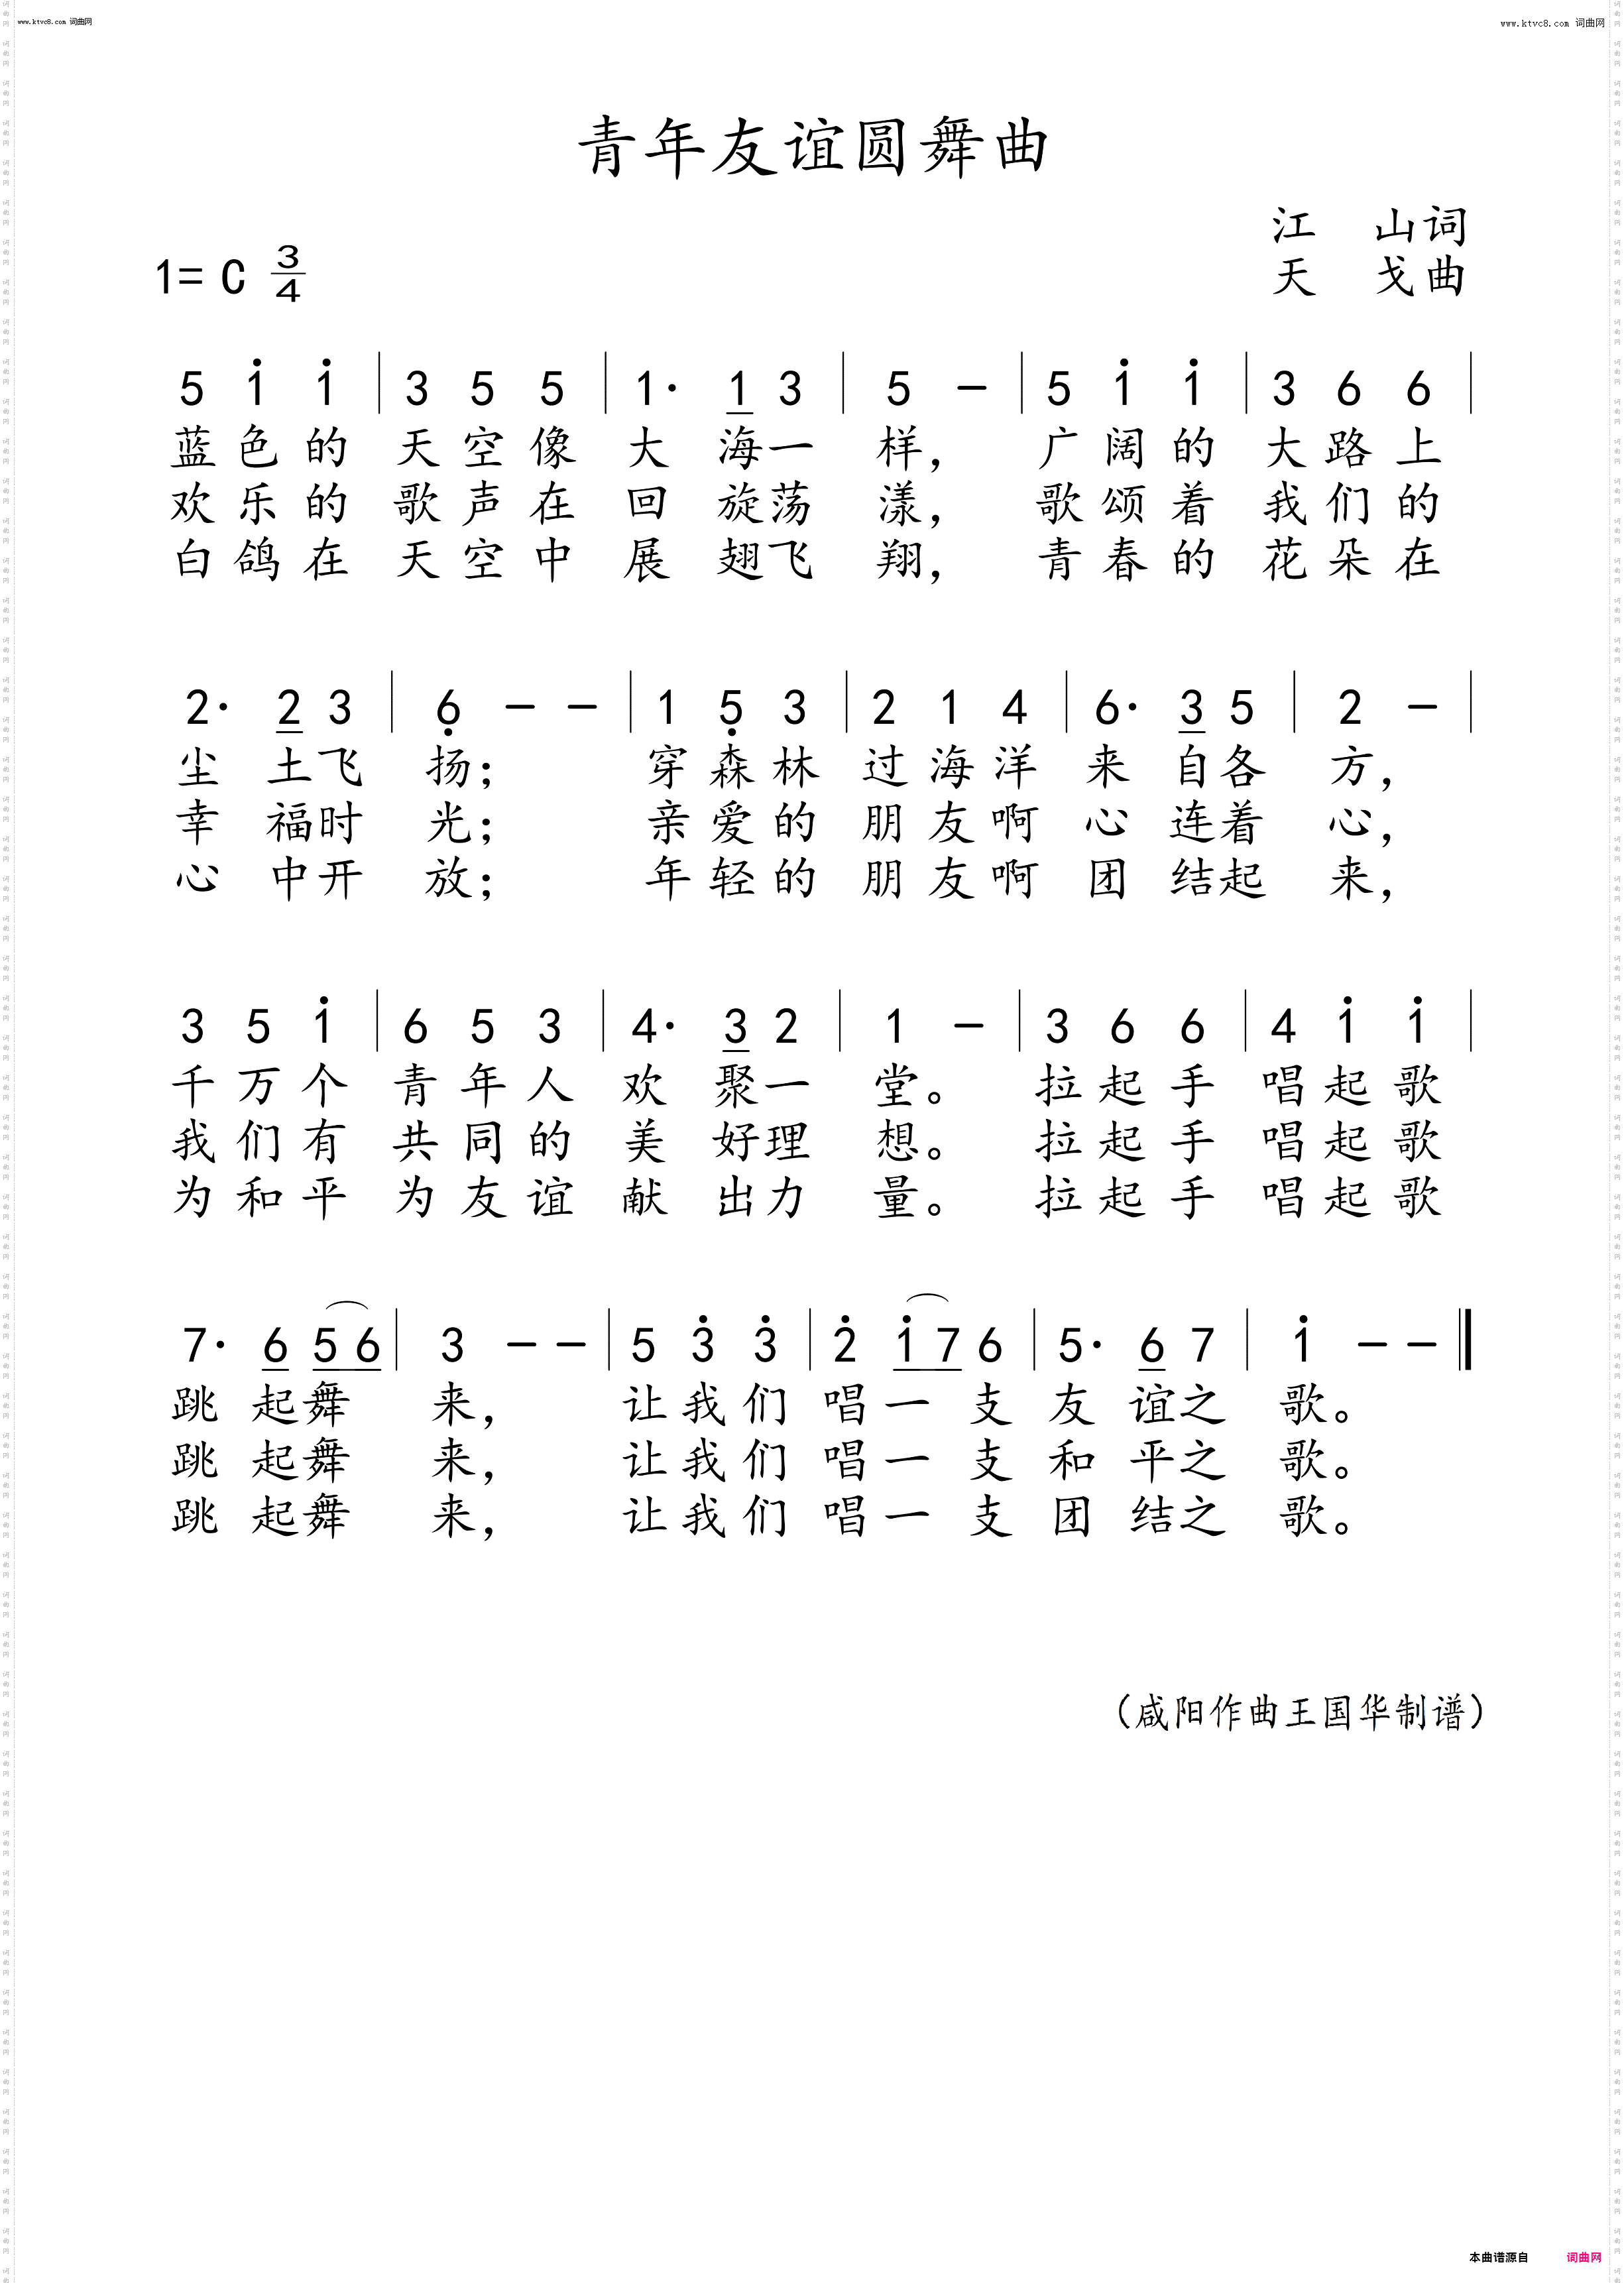 www.ktvc8.com 词曲网
www.ktvc8.com 词曲网
青年友谊圆舞曲
江 山词
1= C 3/4
天 戈曲
5 i i | 3 5 5 | 1· 1 3 | 5 - | 5 i i | 3 6 6 |
蓝色的 天空像 大 海一 样, 广阔的 大路上
欢乐的 歌声在 回 旋荡 漾, 歌颂着 我们的
白鸽在 天空中 展 翅飞 翔, 青春的 花朵在
2· 2 3 | 6 - - | 1 5 3 | 2 1 4 | 6· 3 5 | 2 - |
尘 土飞 扬; 穿森林 过海洋 来 自各 方,
幸 福时 光; 亲爱的 朋友啊 心 连着 心,
心 中开 放; 年轻的 朋友啊 团 结起 来,
3 5 i | 6 5 3 | 4· 3 2 | 1 - | 3 6 6 | 4 i i |
千万个 青年人 欢 聚一 堂。 拉起手 唱起歌
我们有 共同的 美 好理 想。 拉起手 唱起歌
为和平 为友谊 献 出力 量。 拉起手 唱起歌
7· 6 5 6 | 3 - - | 5 3 3 | 2 i 7 6 | 5· 6 7 | i - - ‖
跳 起舞 来, 让我们 唱一支 友 谊之 歌。
跳 起舞 来, 让我们 唱一支 和 平之 歌。
跳 起舞 来, 让我们 唱一支 团 结之 歌。
(咸阳作曲王国华制谱)
本曲谱源自 词曲网